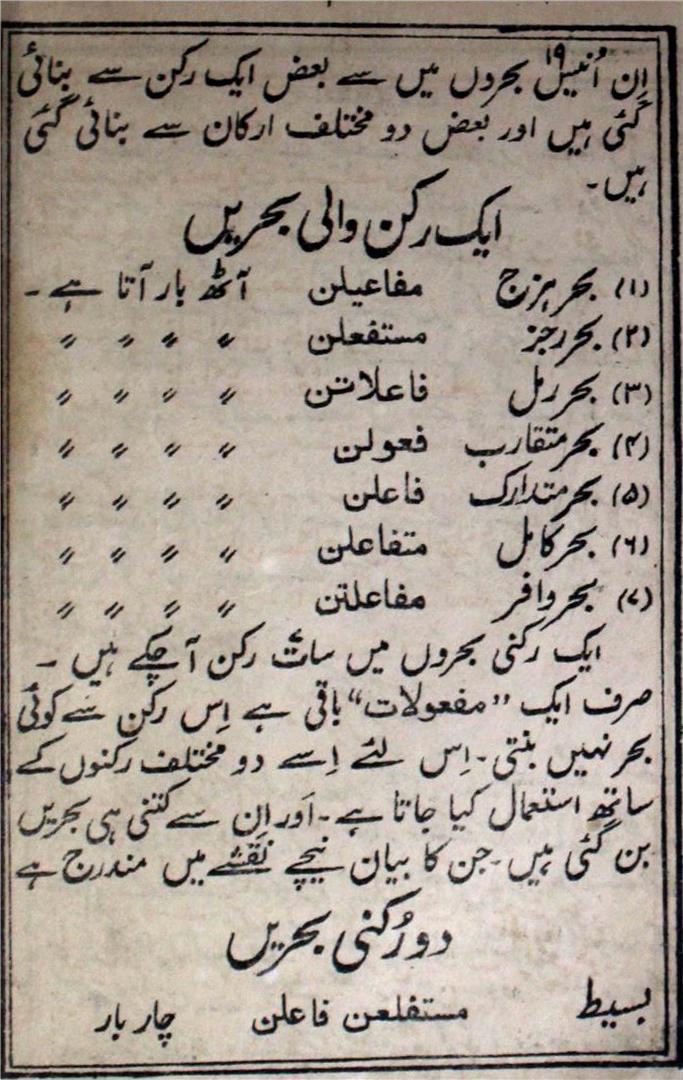 اِن اُنیس ۱۹ بحروں میں سے بعض ایک رکن سے بنائی
گئی ہیں اور بعض دو مختلف ارکان سے بنائی گئی
ہیں۔
ایک رکن والی بحریں
(۱) بحر ہزج مفاعیلن آٹھ بار آتا ہے۔
(۲) بحر رجز مستفعلن 〃 〃 〃 〃
(۳) بحر رمل فاعلاتن 〃 〃 〃 〃
(۴) بحر متقارب فعولن 〃 〃 〃 〃
(۵) بحر متدارک فاعلن 〃 〃 〃 〃
(۶) بحر کامل متفاعلن 〃 〃 〃 〃
(۷) بحر وافر مفاعلتن 〃 〃 〃 〃
ایک رکنی بحروں میں سات رکن آچکے ہیں۔
صرف ایک "مفعولات" باقی ہے اِس رکن سے کوئی
بحر نہیں بنتی۔ اِس لئے اِسے دو مختلف رکنوں کے
ساتھ استعمال کیا جاتا ہے۔ اَور اِن سے کتنی ہی بحریں
بن گئی ہیں۔ جن کا بیان نیچے نقشے میں مندرج ہے
دو رُکنی بحریں
بسیط مستفلعن فاعلن چار بار